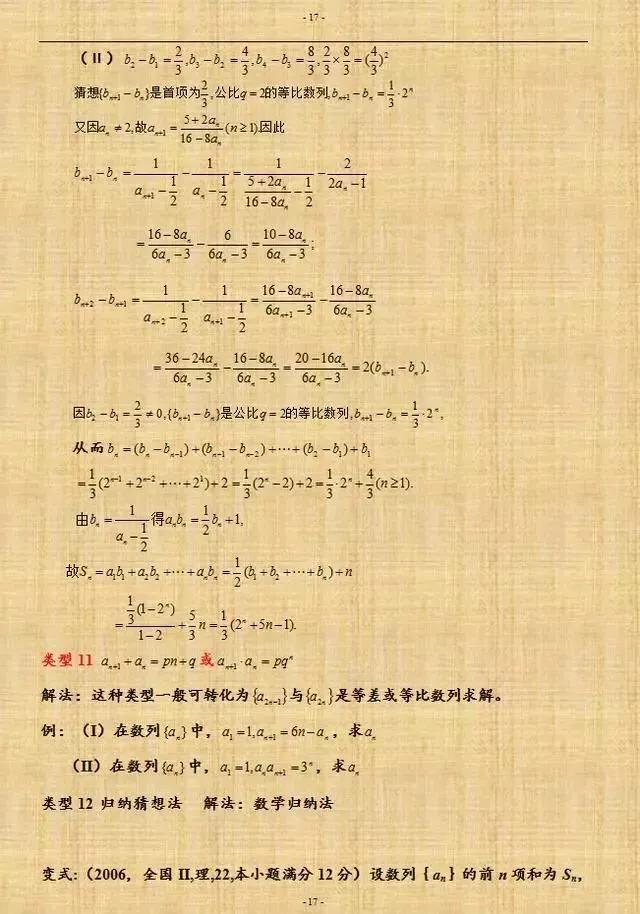 - 17 -
(Ⅱ) b₂ − b₁ = 2/3, b₃ − b₂ = 4/3, b₄ − b₃ = 8/3, 2/3 × 8/3 = (4/3)²
猜想{bₙ₊₁ − bₙ}是首项为2/3, 公比q = 2的等比数列, bₙ₊₁ − bₙ = 1/3 · 2ⁿ
又因aₙ ≠ 2, 故aₙ₊₁ = (5 + 2aₙ)/(16 − 8aₙ) (n ≥ 1).因此
bₙ₊₁ − bₙ = 1/(aₙ₊₁ − 1/2) − 1/(aₙ − 1/2) = 1/((5 + 2aₙ)/(16 − 8aₙ) − 1/2) − 2/(2aₙ − 1)
= (16 − 8aₙ)/(6aₙ − 3) − 6/(6aₙ − 3) = (10 − 8aₙ)/(6aₙ − 3);
bₙ₊₂ − bₙ₊₁ = 1/(aₙ₊₂ − 1/2) − 1/(aₙ₊₁ − 1/2) = (16 − 8aₙ₊₁)/(6aₙ₊₁ − 3) − (16 − 8aₙ)/(6aₙ − 3)
= (36 − 24aₙ)/(6aₙ − 3) − (16 − 8aₙ)/(6aₙ − 3) = (20 − 16aₙ)/(6aₙ − 3) = 2(bₙ₊₁ − bₙ).
因b₂ − b₁ = 2/3 ≠ 0, {bₙ₊₁ − bₙ}是公比q = 2的等比数列, bₙ₊₁ − bₙ = 1/3 · 2ⁿ,
从而 bₙ = (bₙ − bₙ₋₁) + (bₙ₋₁ − bₙ₋₂) + ⋯ + (b₂ − b₁) + b₁
= 1/3 (2ⁿ⁻¹ + 2ⁿ⁻² + ⋯ + 2¹) + 2 = 1/3 (2ⁿ − 2) + 2 = 1/3 · 2ⁿ + 4/3 (n ≥ 1).
由bₙ = 1/(aₙ − 1/2) 得aₙbₙ = 1/2 bₙ + 1,
故Sₙ = a₁b₁ + a₂b₂ + ⋯ + aₙbₙ = 1/2 (b₁ + b₂ + ⋯ + bₙ) + n
= (1/3 (1 − 2ⁿ))/(1 − 2) + 5/3 n = 1/3 (2ⁿ + 5n − 1).
类型11 aₙ₊₁ + aₙ = pn + q 或 aₙ₊₁ · aₙ = pqⁿ
解法：这种类型一般可转化为{a₂ₙ₋₁}与{a₂ₙ}是等差或等比数列求解。
例：（Ⅰ）在数列{aₙ}中，a₁ = 1, aₙ₊₁ = 6n − aₙ，求aₙ
（Ⅱ）在数列{aₙ}中，a₁ = 1, aₙaₙ₊₁ = 3ⁿ，求aₙ
类型12 归纳猜想法 解法：数学归纳法
变式:（2006，全国II,理,22,本小题满分12分）设数列｛aₙ｝的前n项和为Sₙ，
- 17 -